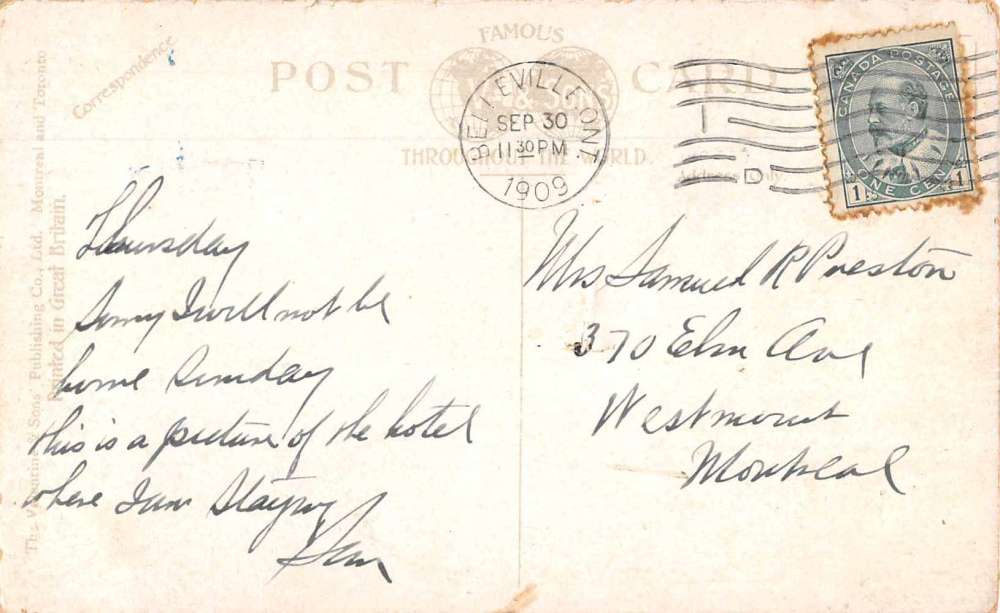 Correspondence
FAMOUS
POST CARD
& SONS
THROUGHOUT THE WORLD.
BELLEVILLE ONT.
SEP 30
11 30 PM
1909
D
Address Only.
CANADA POSTAGE
1 ONE CENT 1
The Valentine & Sons' Publishing Co., Ltd. Montreal and Toronto
Printed in Great Britain.
Thursday
Sorry I will not be
home Sunday
this is a picture of the hotel
where I am Staying
Sam
Mrs Samuel R Preston
370 Elm Ave
Westmount
Montreal